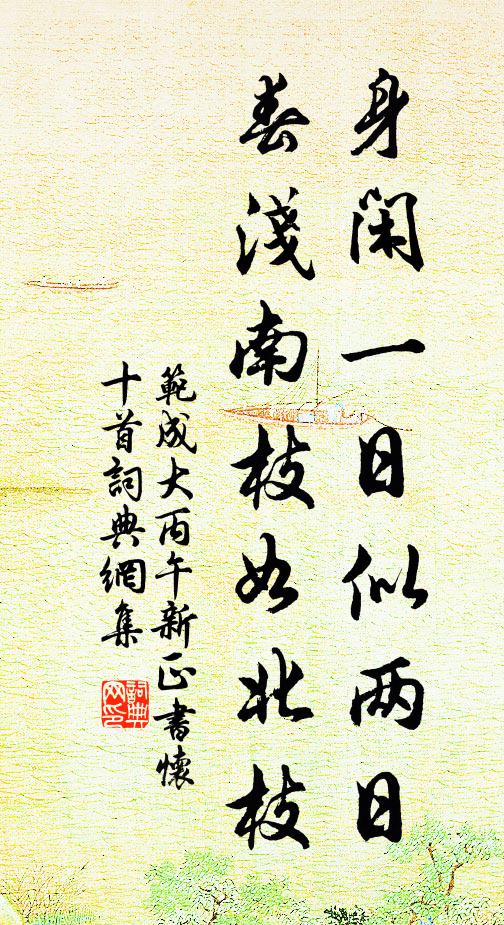 身闲一日似两日
春浅南枝如北枝
範成大丙午新正書懷
十首詞典網集
詞典網印